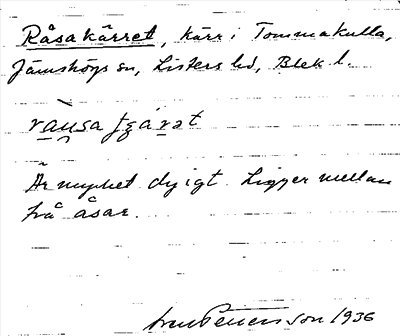 Råsakärret, kärr i Tommakulla,
Jämshögs sn, Listers hd, Blek l.
Är mycket dyigt. Ligger mellan
två åsar.
1936